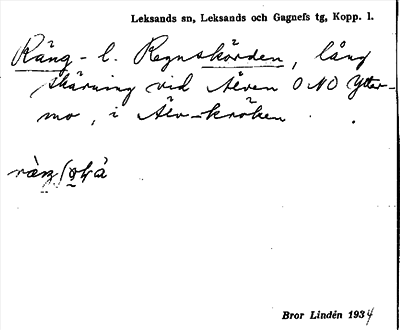 Leksands sn, Leksands och Gagnefs tg, Kopp. l.
Räng- l. Regnskörden, lång
skärning vid Älven O NO Ytter-
mo, i Älv-kröken.
Bror Lindén 1934